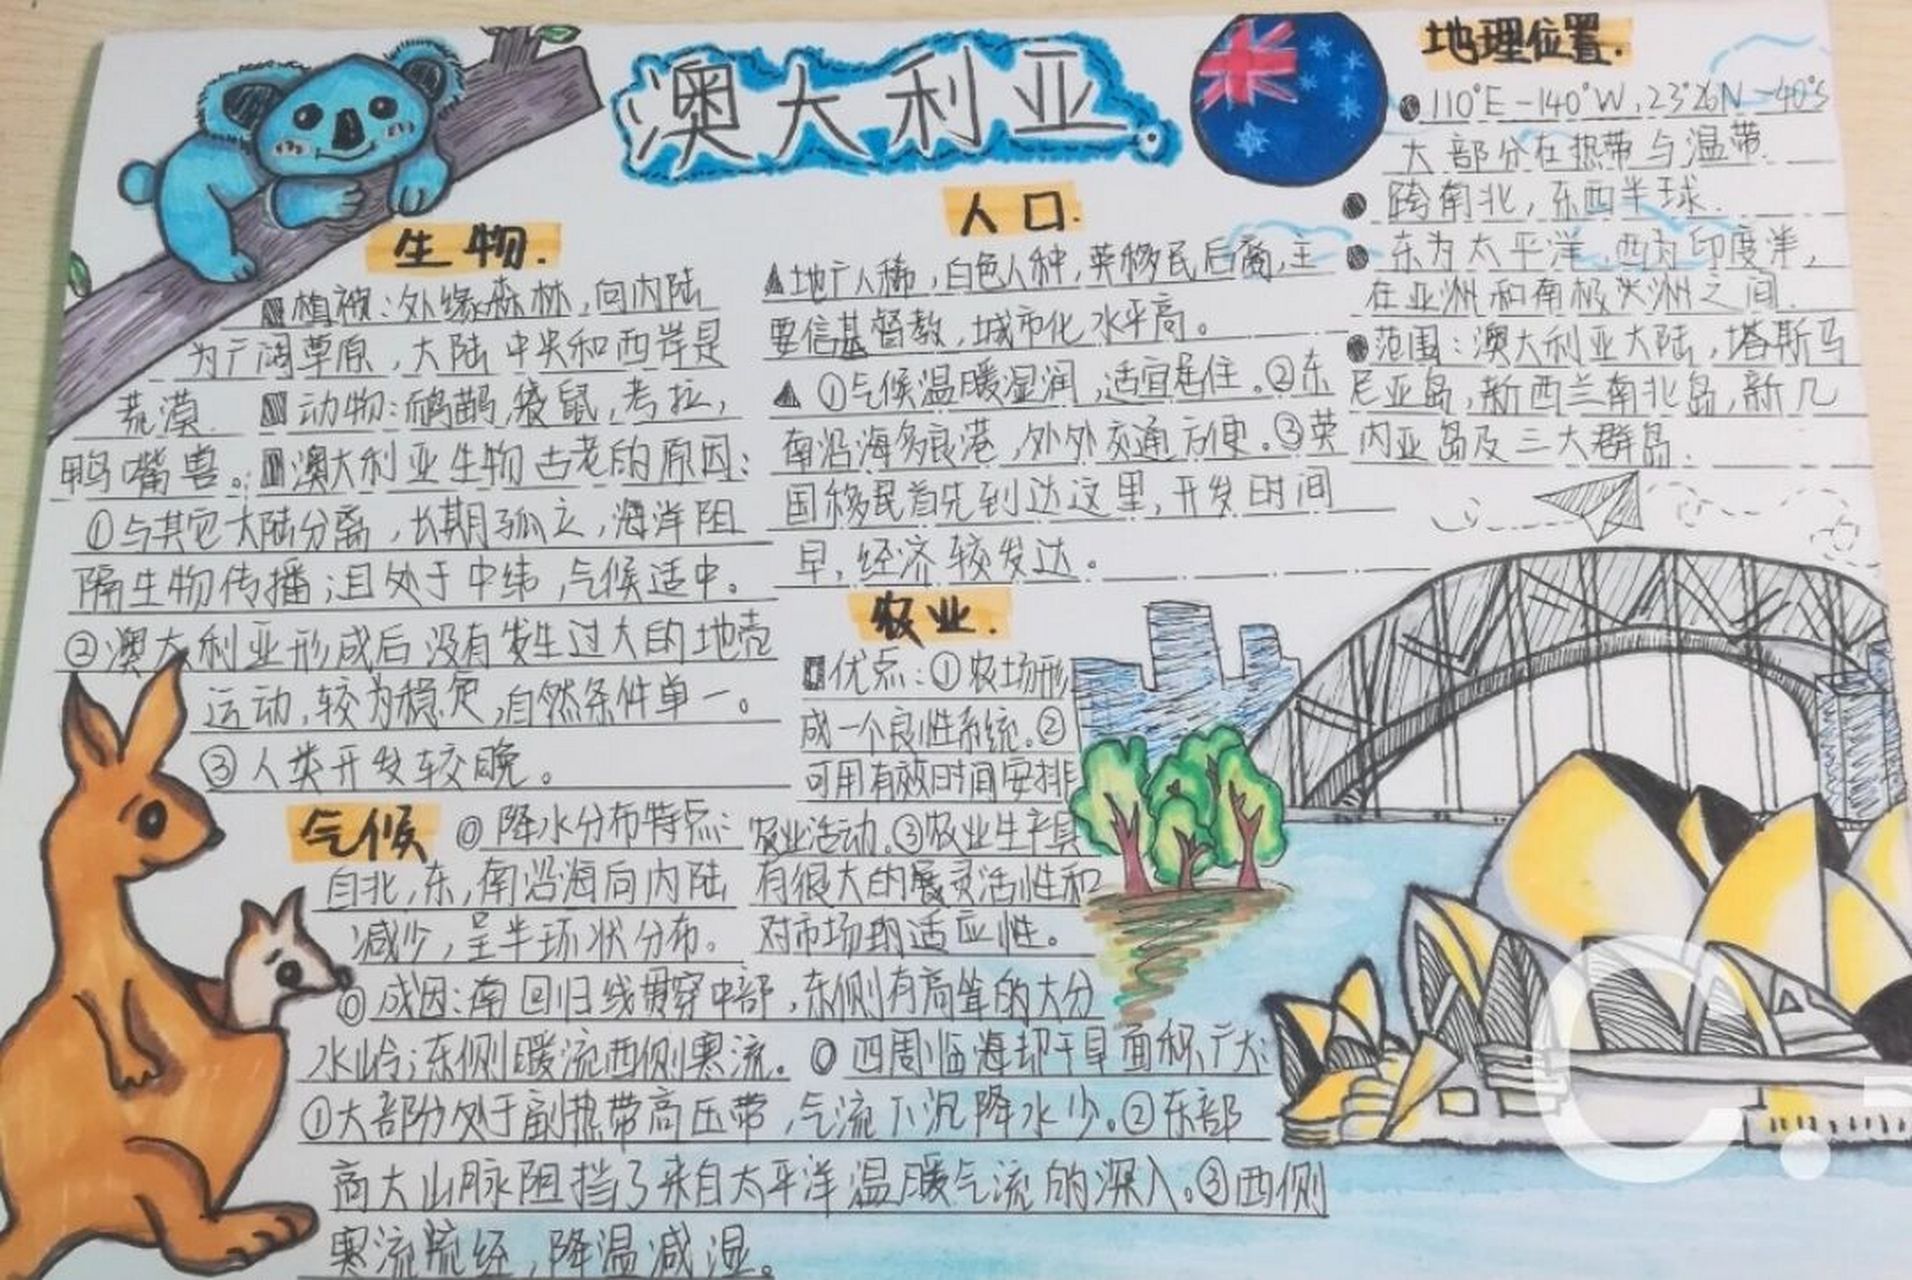 澳大利亚
生物.
植被：外缘森林，向内陆
为广阔草原，大陆中央和西岸是
荒漠. 动物：鸸鹋，袋鼠，考拉，
鸭嘴兽。澳大利亚生物古老的原因：
①与其它大陆分离，长期孤立，海洋阻
隔生物传播；且处于中纬，气候适中。
②澳大利亚形成后没有发生过大的地壳
运动，较为稳定，自然条件单一。
③人类开发较晚。
气候
降水分布特点：
自北，东，南沿海向内陆
减少，呈半环状分布。
成因：南回归线贯穿中部，东侧有高耸的大分
水岭；东侧暖流西侧寒流。 四周临海却干旱面积广大：
①大部分处于副热带高压带，气流下沉降水少。②东部
高大山脉阻挡了来自太平洋温暖气流的深入。③西侧
寒流流经，降温减湿。
人口.
地广人稀，白色人种，英移民后裔，主
要信基督教，城市化水平高。
①气候温暖湿润，适宜居住。②东
南沿海多良港，外外交通方便。③英
国移民首先到达这里，开发时间
早，经济较发达。
农业.
优点：①农场形
成一个良性系统。②
可用有效时间安排
农业活动。③农业生产具
有很大的灵活性和
对市场的适应性。
地理位置.
110°E-140°W,23°26N-40°S
大部分在热带与温带.
跨南北，东西半球.
东为太平洋，西为印度洋，
在亚洲和南极洲之间.
范围：澳大利亚大陆，塔斯马
尼亚岛，新西兰南北岛，新几
内亚岛及三大群岛.